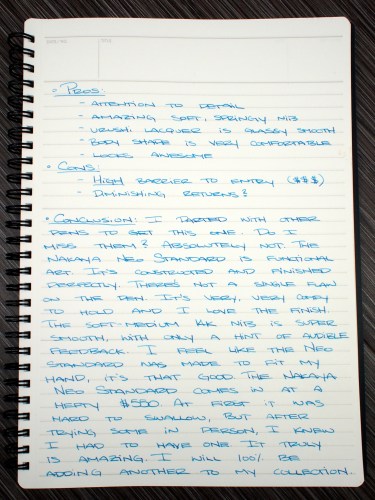 • Pros:
- Attention to detail
- Amazing soft, springy nib
- Urushi lacquer is glassy smooth
- Body shape is very comfortable
- Looks awesome
• Cons:
- High barrier to entry ($$$)
- Diminishing returns?
• Conclusion: I parted with other
pens to get this one. Do I
miss them? Absolutely not. The
Nakaya Neo Standard is functional
art. It's constructed and finished
perfectly. There's not a single flaw
on the pen. It's very, very comfy
to hold and I love the finish.
The soft-medium KK nib is super
smooth, with only a hint of audible
feedback. I feel like the Neo
Standard was made to fit my
hand, it's that good. The Nakaya
Neo Standard comes in at a
hefty $550. At first it was
hard to swallow, but after
trying some in person, I knew
I had to have one. It truly
is amazing. I will 100% be
adding another to my collection.